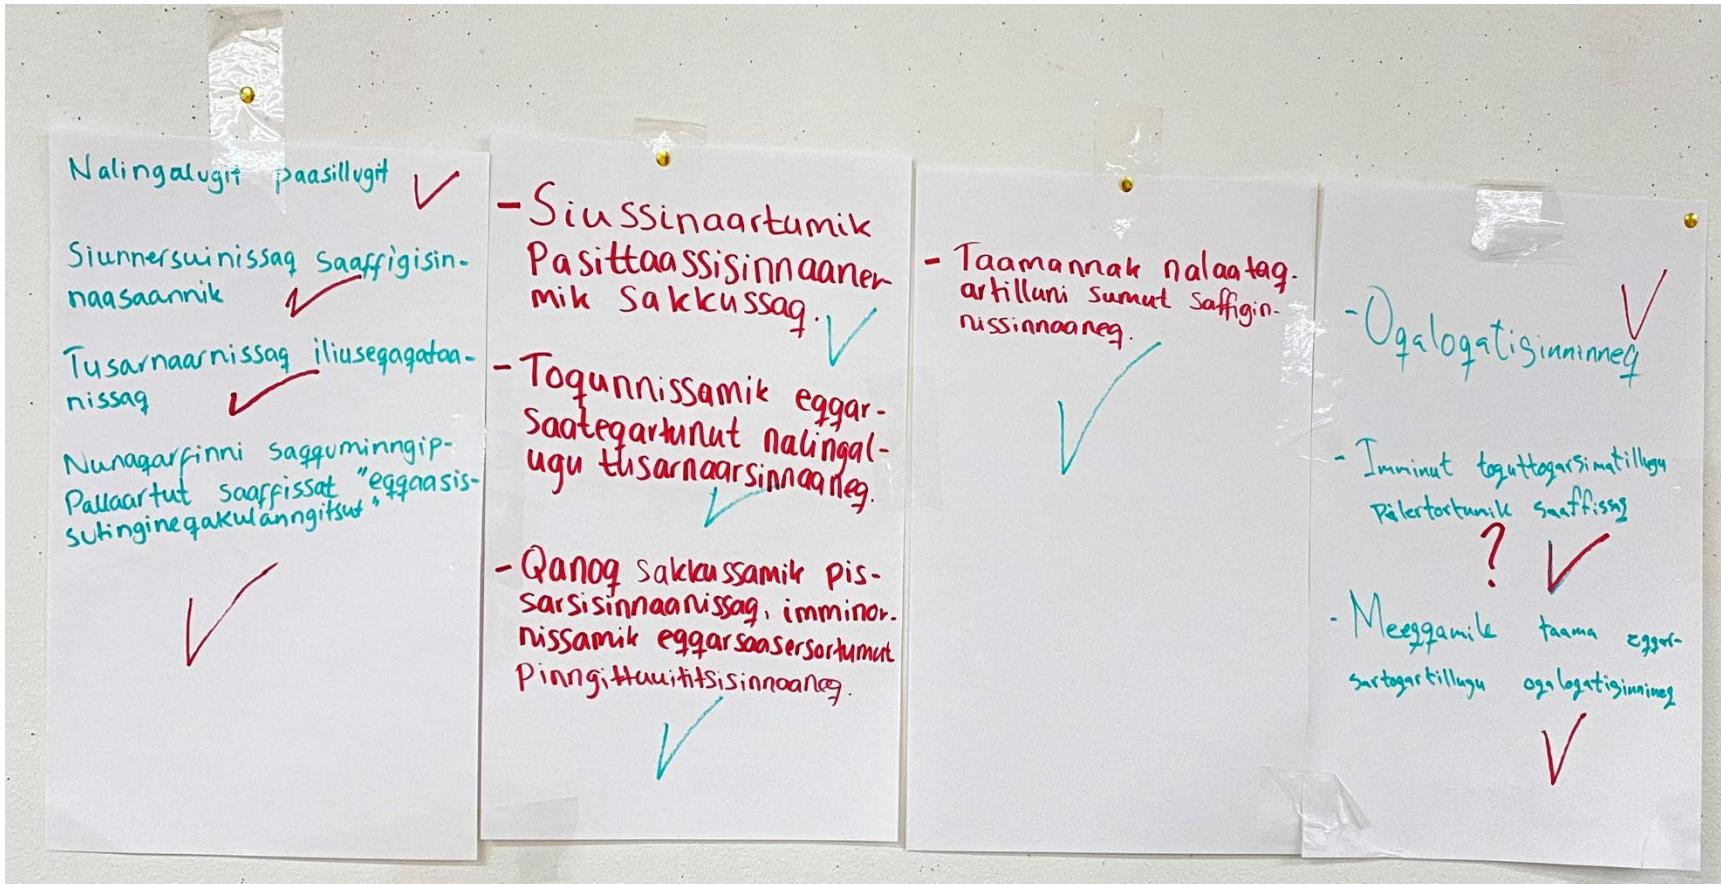 Nalingalugit paasillugit
Siunnersuinissaq saaffigisin-
naasaannik
Tusarnaarnissaq iliuseqaqataa-
nissaq
Nunaqarfinni saqquminngip-
pallaartut saaffissat "eqqaasis-
sutingineqakulanngitsut"
- Siussinaartumik
Pasittaassisinnaaner-
mik sakkussaq.
- Toqunnissamik eqqar-
saateqartunut nalingal-
ugu tusarnaarsinnaaneq.
- Qanoq sakkussamik pis-
sarsisinnaanissaq, imminor-
nissamik eqqarsaasersortumut
pinngittuuititsisinnaaneq.
- Taamannak nalaataq-
artilluni sumut saffigin-
nissinnaaneq.
- Oqaloqatiginninneq
- Imminut toquttoqarsimatillugu
pilertortumik saaffissq
?
- Meeqqamik taama eqqar-
sartoqartillugu oqaloqatiginnineq